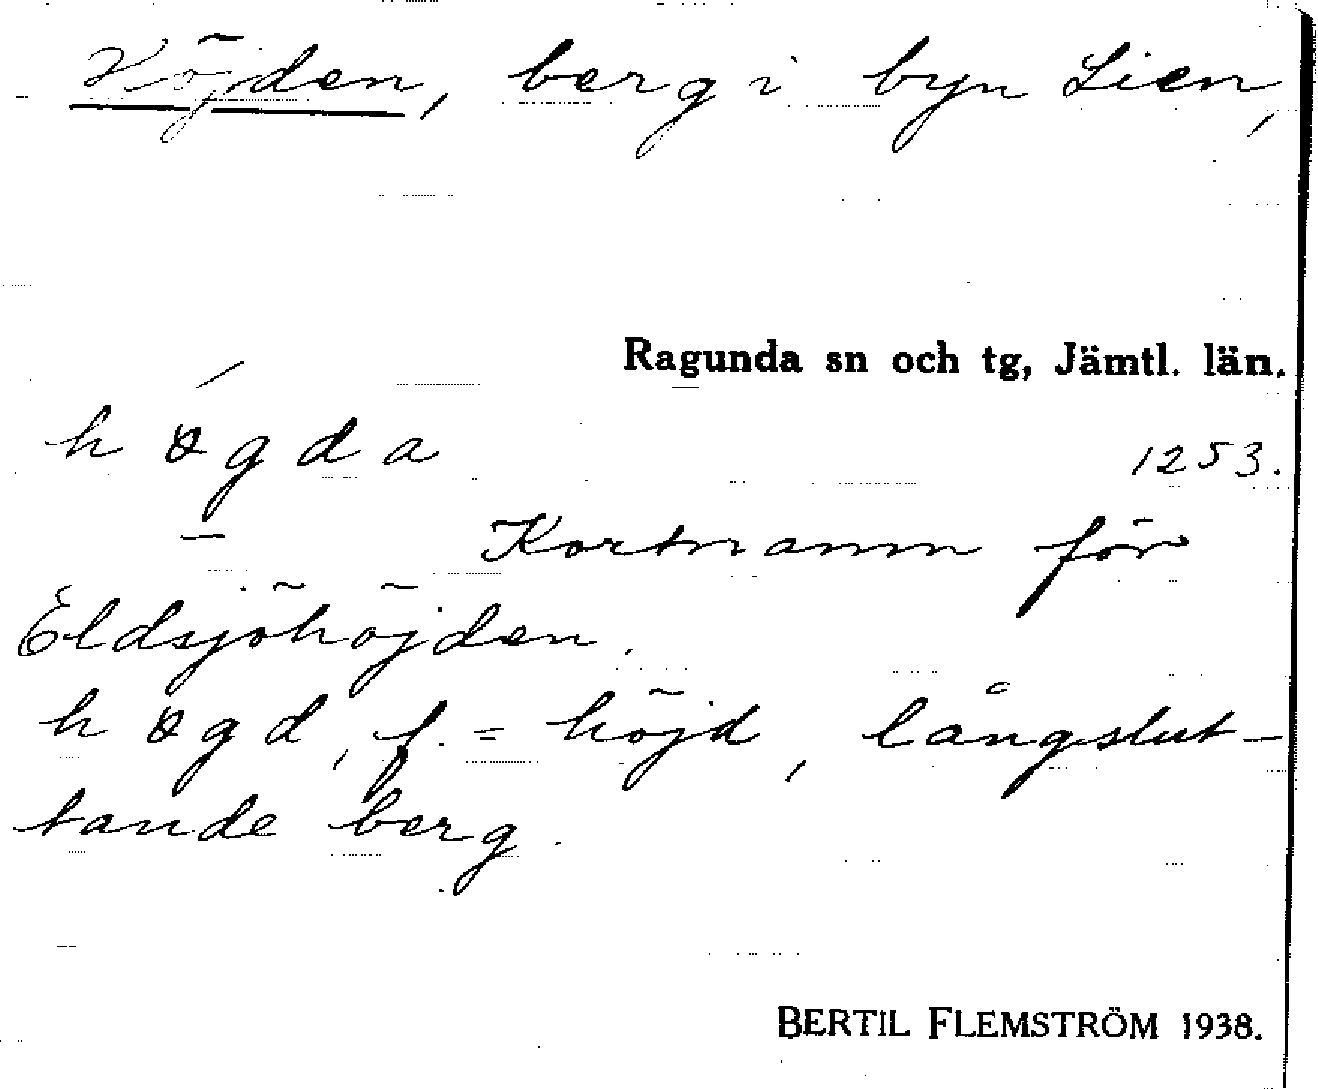 Höjden, berg i byn Lien,
Ragunda sn och tg, Jämtl. län.
høgda
1253.
Kortnamn för
Eldsjöhöjden.
høgd, f. = höjd, långslut-
tande berg.
BERTIL FLEMSTRÖM 1938.